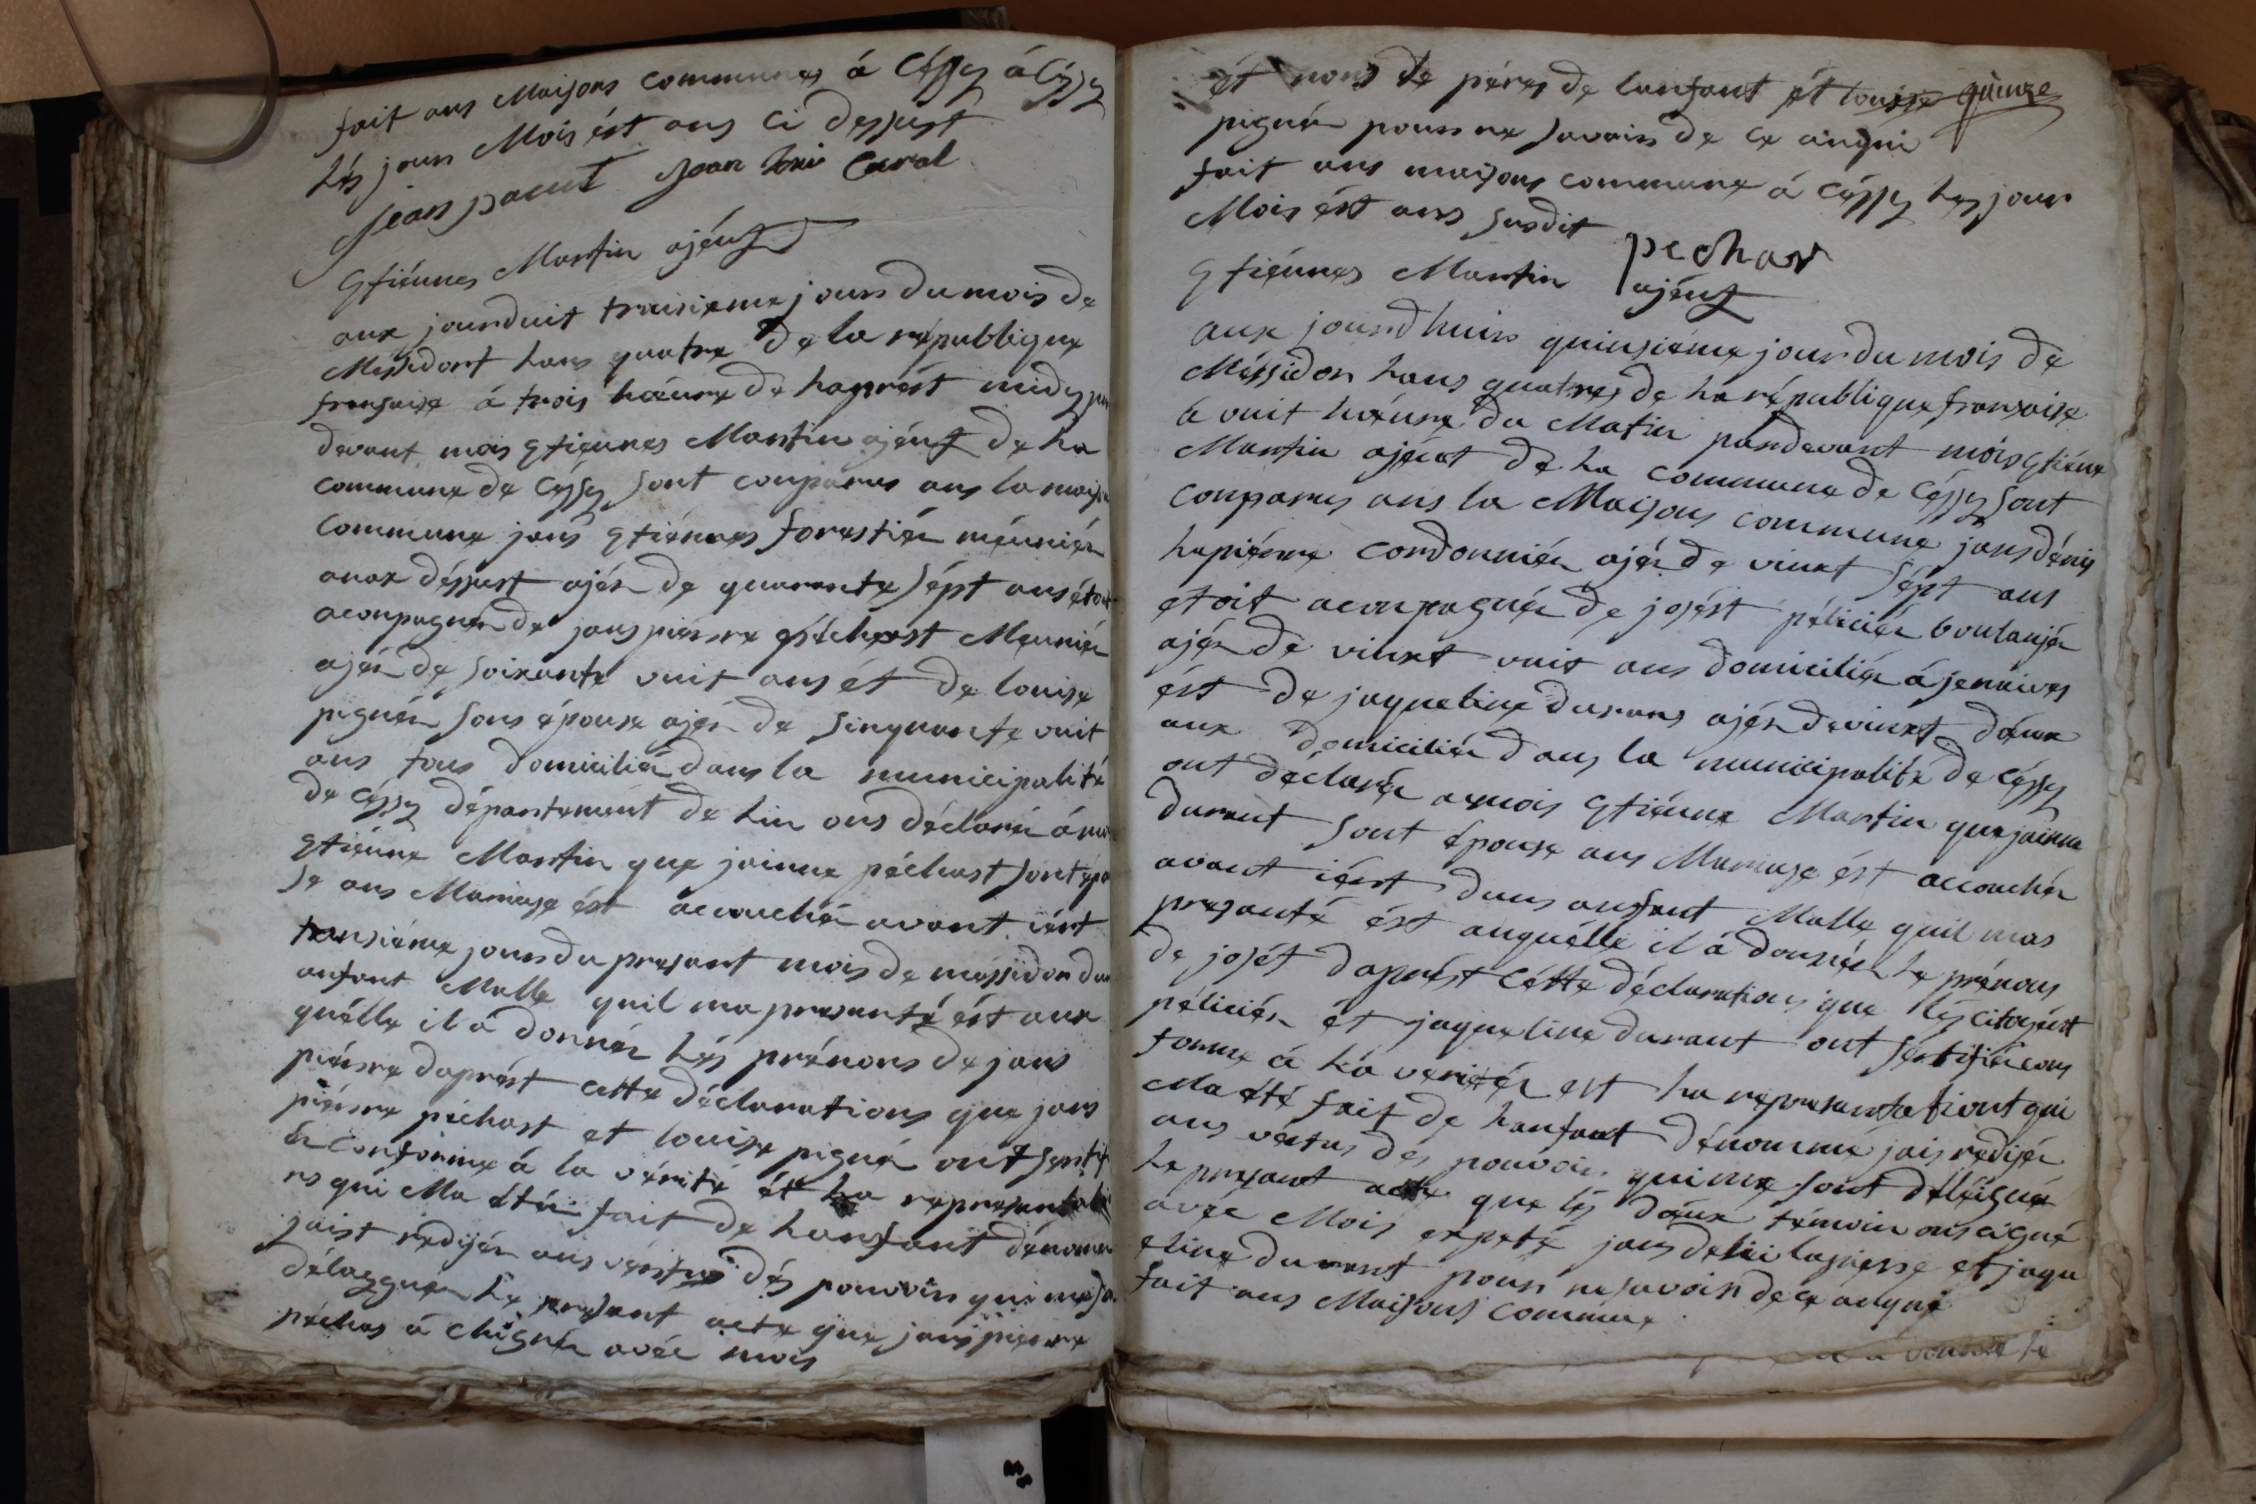 fait ans Maisons communes á Céssy á Céssy
Lés jour Mois ést ans ci dessust
jean pacut Jean loui Caral
Etiénnes Martin ajént
aux jourduit traisieme jours du mois de
Messidort hans quatre de la républigue
fransaise á trois hœure de haprést midy par
devant mois Etiennes Martin ajént de ha
commune de Céssy sont conparus ans la maison
Commune jans Etiénnes forestiér méuniér
anax déssust ajér de quarante sépt ans étoit
aconpagnér de jans piérre péchast Meuniér
ajér de soixante vuit ans ét de louise
pignér sons épouse ajér de sinquante vuit
ans tous domiciliér dans la municipalité
de Céssy département de hin ons déclarér á moi
Etiénne Martin que jainne péchast sont épou
se ans Mariage ést accouchér avant iért
traisiéme jours du presant mois de méssidor dun
anfant Malle quil ma presanté ést aux
quélle il á donnér Lés prénons de jans
piérre daprést cette déclarations que jans
piérre péchast et louise pignér ont sertifi
ér conforme á la vérité ét ha represantatio
ns qui Ma étér fait de hanfant dénommé
jaist redijér ans vértus dés pouvoirs qui me son
délaggués Le presant acte que jans pierre
péchas á Chignér avéc mois
ét nons de péres de lanfant ét louise
pignér pour ne savoir de ce anqui
fait ans maisons commune á Céssy Les jour
Mois ést ans susdit
pechar
Etiénnes Martin ajént
aux jourdhuis quinsiéme jour du mois de
Méssidor hans quatres de ha républigue fransaise
a vuit hœure du Matin pardevant mois Etiéne
Martin ajént de ha commune de Céssy sont
conparus ans la Maisons commune jans dénis
lapiérre cordonniér ajér de vinxt sépt ans
etoit aconpagnér de josést péliciér boulanjér
ajér de vinxt vuit ans domiciliér á jenaives
ést de jaqueline durans ajér de vinxt déux
ans domiciliér dans la municipalité de Céssy
ont déclarér a mois Etiénne Martin que jainne
durant sont épouse ans Mariage ést accouchér
avant iérst duns anfant Malle quil mas
presanté ést auquélle il á donnér Le prénons
de josét daprést cétte déclarations que Lés citoyént
péliciér ét jaqueline durant ont sértifiér cons
forme á ha veritér est ha represantationt qui
Ma été fait de hanfant dénommé jais redijér
ans vértus dés pouvoirs qui me sont déléigué
Le presant acte que lés déux témoin ons cigné
avéc Mois expeté jans denis lapierre et jaqu
eline durant pour ne savoir de ce anqui
fait ans Maisons commune